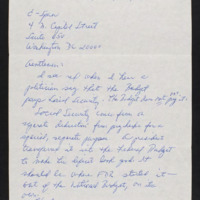 C-Span
4 N. Capitol Street
Suite 650
Washington DC 20001
Gentlemen:
I am mad when I hear a
politician say that the Budget
pays Social Security. The Budget does not pay
Social Security comes from a
separate deduction from paychecks for a
special, separate purpose. A president
transferred it into the Federal Budget
to make the deficit look good. It
should be where FDR started it —
out of the National Budget, on its
own.